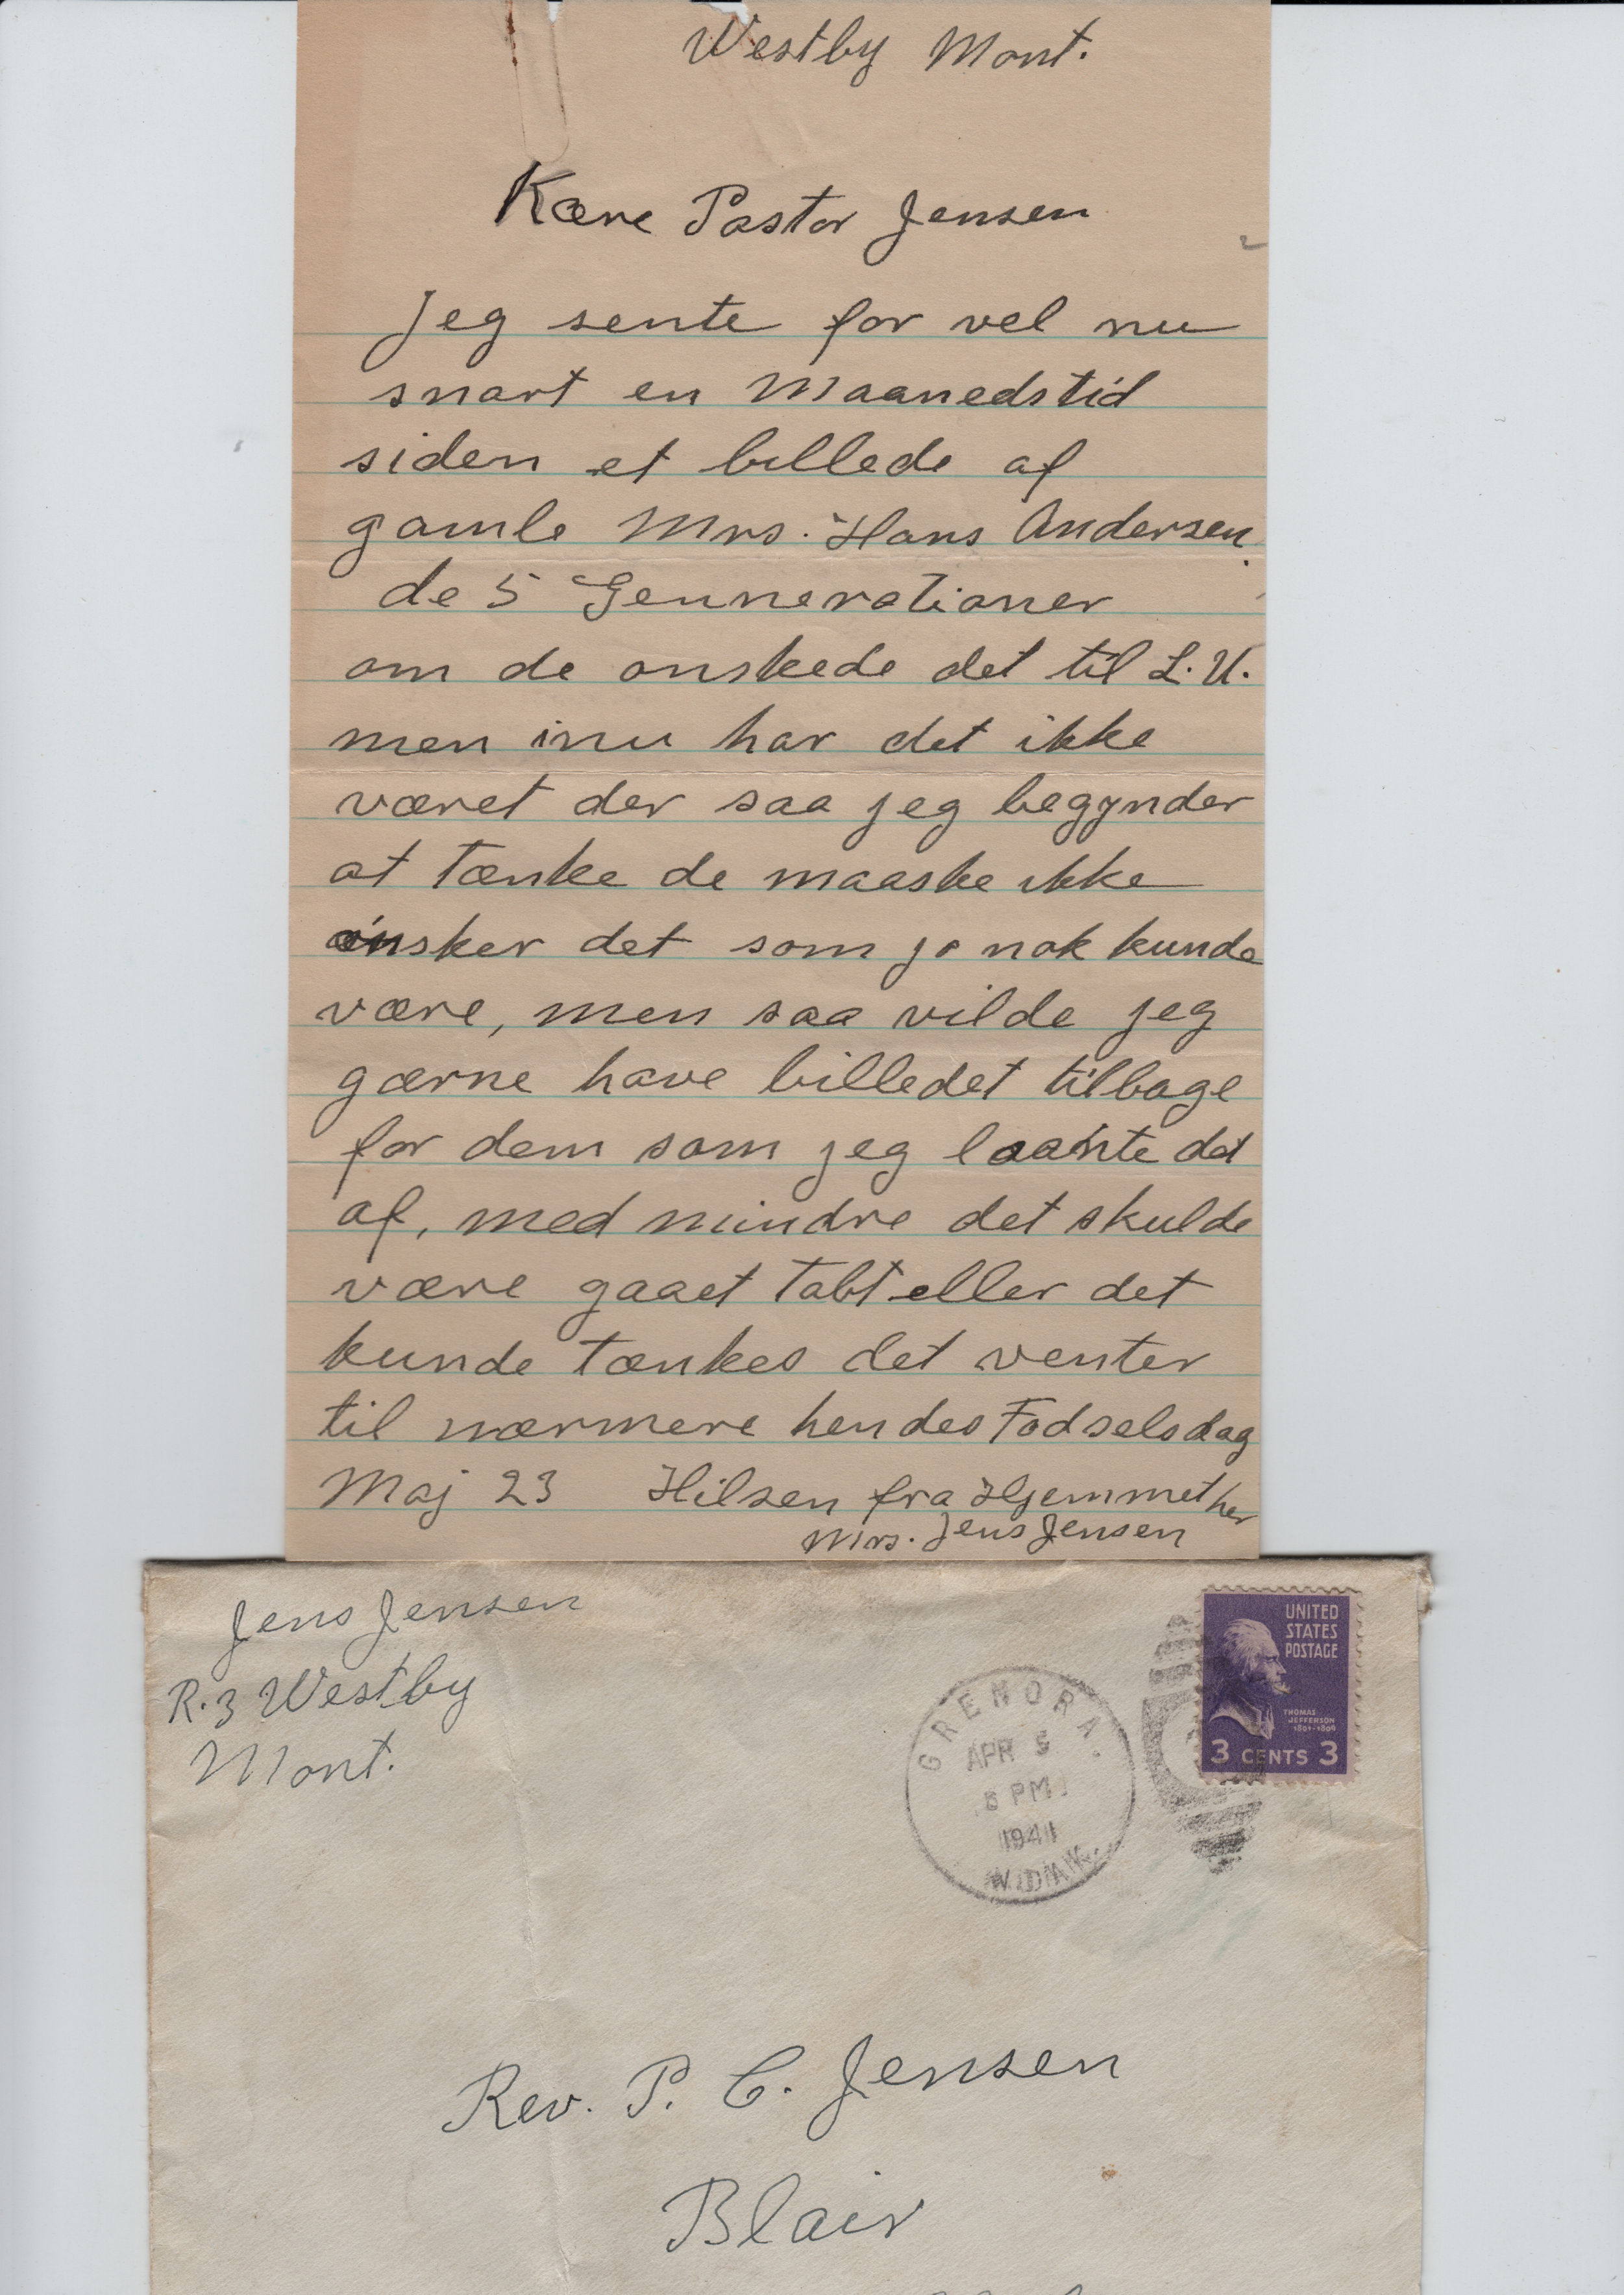 Westby Mont.
Kære Pastor Jensen
Jeg sente for vel nu
snart en Maanedstid
siden et billede af
gamle Mrs. Hans Andersen.
de 5 Gennerationer
om de onskede det til L.U.
men inu har det ikke
været der saa jeg begynder
at tænke de maaske ikke
ønsker det som jo nok kunde
være, men saa vilde jeg
gærne have billedet tilbage
for dem som jeg laante det
af, med mindre det skulde
være gaaet Tabt eller det
kunde tænkes det venter
til nærmere hendes Fodselsdag
Maj 23 Hilsen fra Hjemmet her
Mrs. Jens Jensen
Jens Jensen
R.3 Westby
Mont.
UNITED
STATES
POSTAGE
THOMAS
JEFFERSON
1801-1809
3 CENTS 3
GRENORA,
APR 5
PM
1941
N.DAK.
Rev. P. C. Jensen
Blair